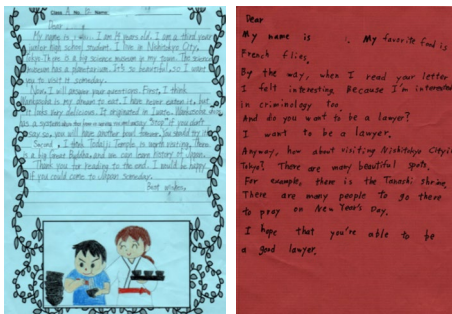 Class A No. B Name
Dear
My name is I am 14 years old. I am a third year
junior high school student. I live in Nishitokyo City,
Tokyo. There is a big science museum in my town. The science
museum has a planetarium. It's so beautiful, so I want
you to visit it someday.
Now, I will answer your questions. First, I think
Wankosoba is my dream to eat. I have never eated it, but
it looks very delicious. It originated in Iwate. Wankosoba
has a system
say so, you will have another bowl You should try it!
Second, I think Todaiji Temple is worth visiting. There
is a big Great Buddha, and you can learn history of Japan.
Thank you for reading to the end. I would be happy
if you could come to Japan someday.
Best wishes,
Dear
My name is . My favorite food is
French flies.
By the way, when I read your letter
I felt interesting Because I'm interested
in criminology too.
And do you want to be a lawyer?
I want to be a lawyer.
Anyway, how about visiting Nishitokyo City in
Tokyo? There are many beautiful spots.
For example, there is the Tanashi Shrine.
There are many people to go there
to pray on New Year's Day.
I hope that you're able to be
a good lawyer.